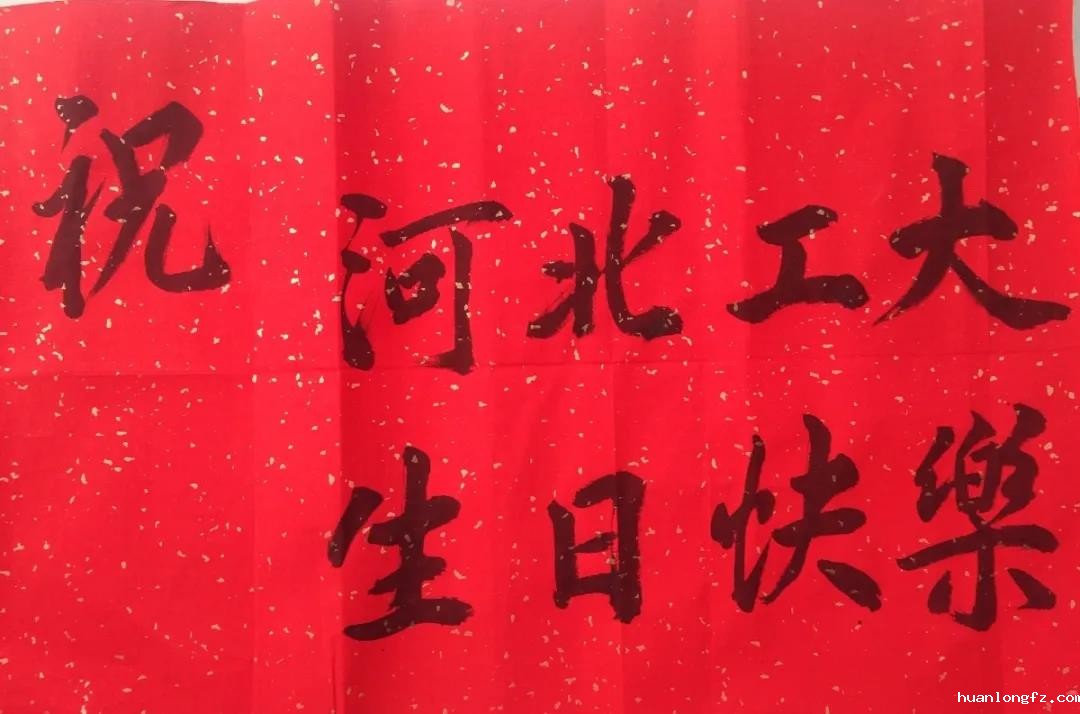 祝
河北工大
生日快樂
huanlongfz.com